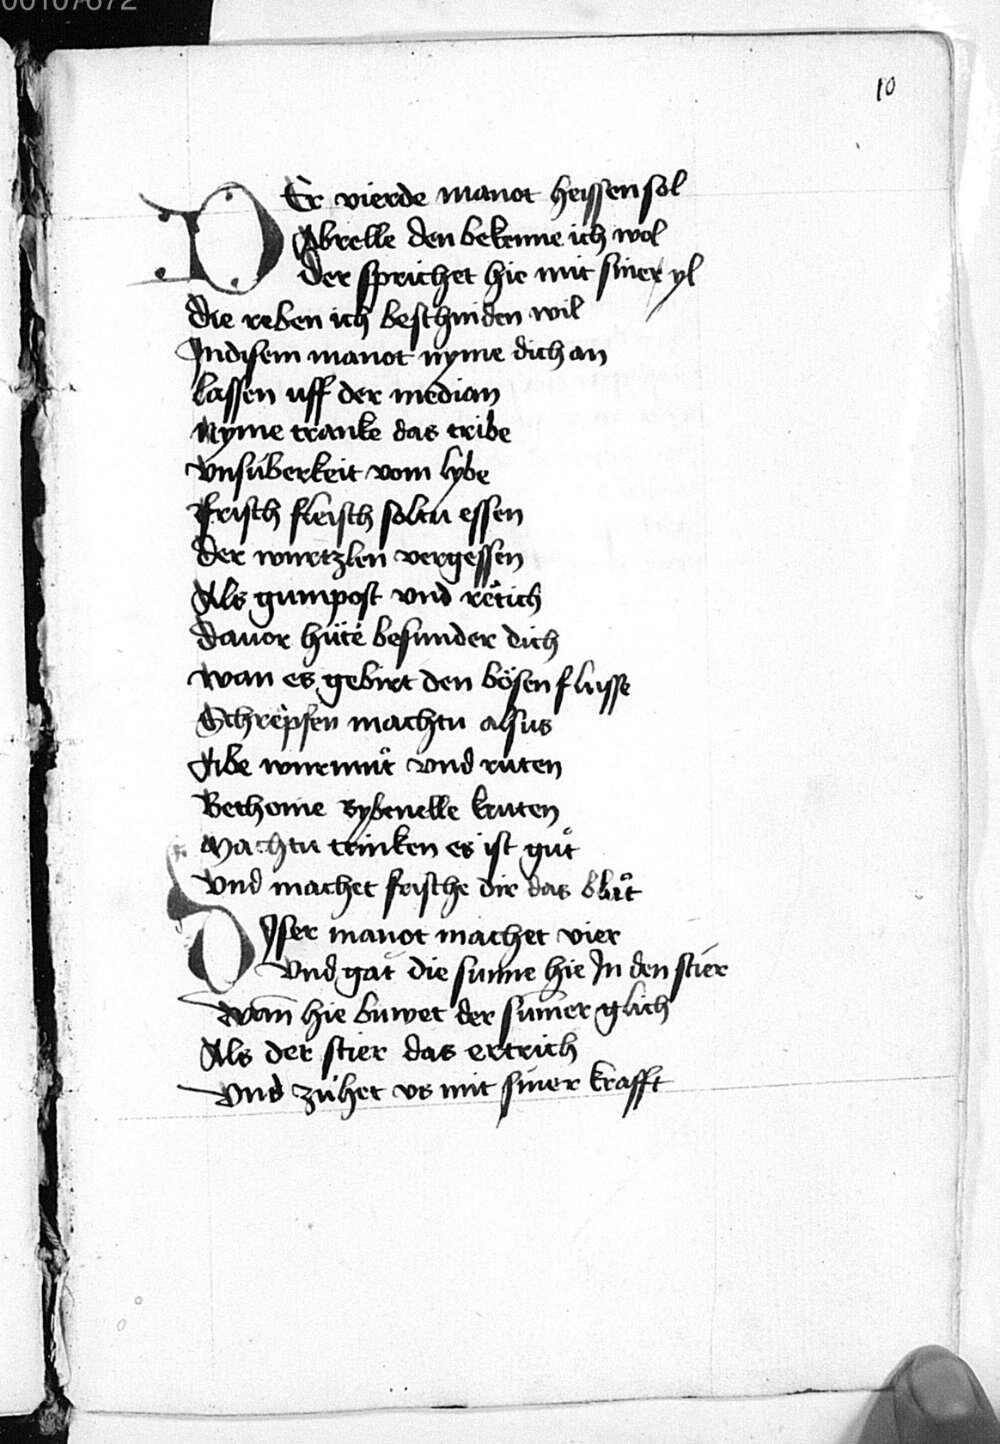 00107672
10
DEr vierde manot heissen sol
Abrelle den bekenne ich wol
Der sprichet hie mit siner yl
Die reben ich beschniden wil
In disem manot nyme dich an
Lassen uff der median
Nyme tranke das tribe
Vnsúberkeit vom lybe
Frisch fleisch soltu essen
Der wurtzlen vergessen
Als gumpost vnd rëtich
Dauor hüte besunder dich
Wan es gebirt den bösen flusse
Schrëpfen machtu alsus
Abe wurmuͦt vnd ruten
Bethonie bybenelle kruten
Machtu trinken es ist guͦt
Vnd machet frische dir das bluͦt
DIser manot machet vier
Vnd gat die sunne hie In den stier
Wañ hie buwet der sum̄er glich
Als der stier das ertrich
Vnd zúhet vs mit siner krafft